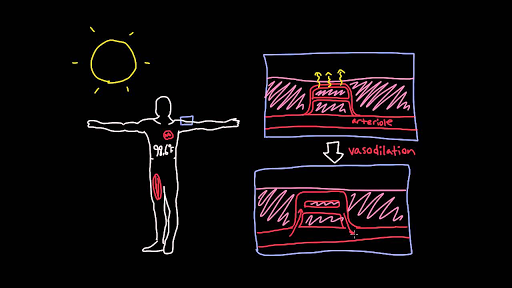 98.6°F
arteriole
vasodilation